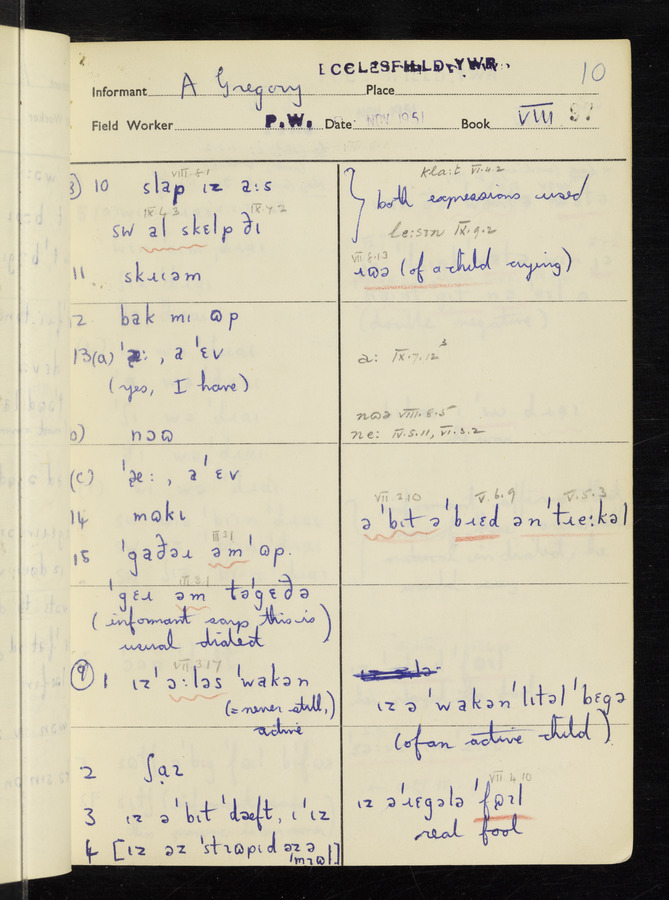 ECCLESFIELD, YWR.
10
Informant A Gregory Place
Field Worker P.W. Date NOV 1951 Book VIII
8) 10 slap ɪz a:s
VIII.8.1
kla:t VI.4.2
both expressions used
IX.4.3 IX.4.2
sw al skɛlp ðɪ
le:sɪn IX.9.2
VIII.8.13
ɹɷə (of a child crying)
11 skɹɪəm
12 bak mɪ ɷp
13(a) 'æ: , a 'ɛv
a: IX.7.12
(yes, I have)
b) nɔɷ
nɷə VIII.8.5
ne: IV.5.11, VI.3.2
(c) 'æ: , a 'ɛv
VII.2.10 V.6.9 V.5.3
ə 'bɪt ə 'bɹɛd ən 'tɹe:kəl
14 mɷkɪ
III.3.1
15 'gaðəɹ əm 'ɷp.
III.3.1
'gɛɹ əm tə'gɛðə
(informant says this is
usual dialect)
VII.3.17
9 1 ɪz 'ɔ:ləs 'wakən
(=never still,
active)
ɪz ə 'wakən 'lɪtəl 'bɛgə
(of an active child).
2 ʃaz
3 ɪz ə 'bɪt 'dæft, ɪ 'ɪz
VII.4.10
ɪz ə 'ɹɛgələ 'fɷɪl
real fool
4 [ɪz əz 'stɹɷpɪd əzə